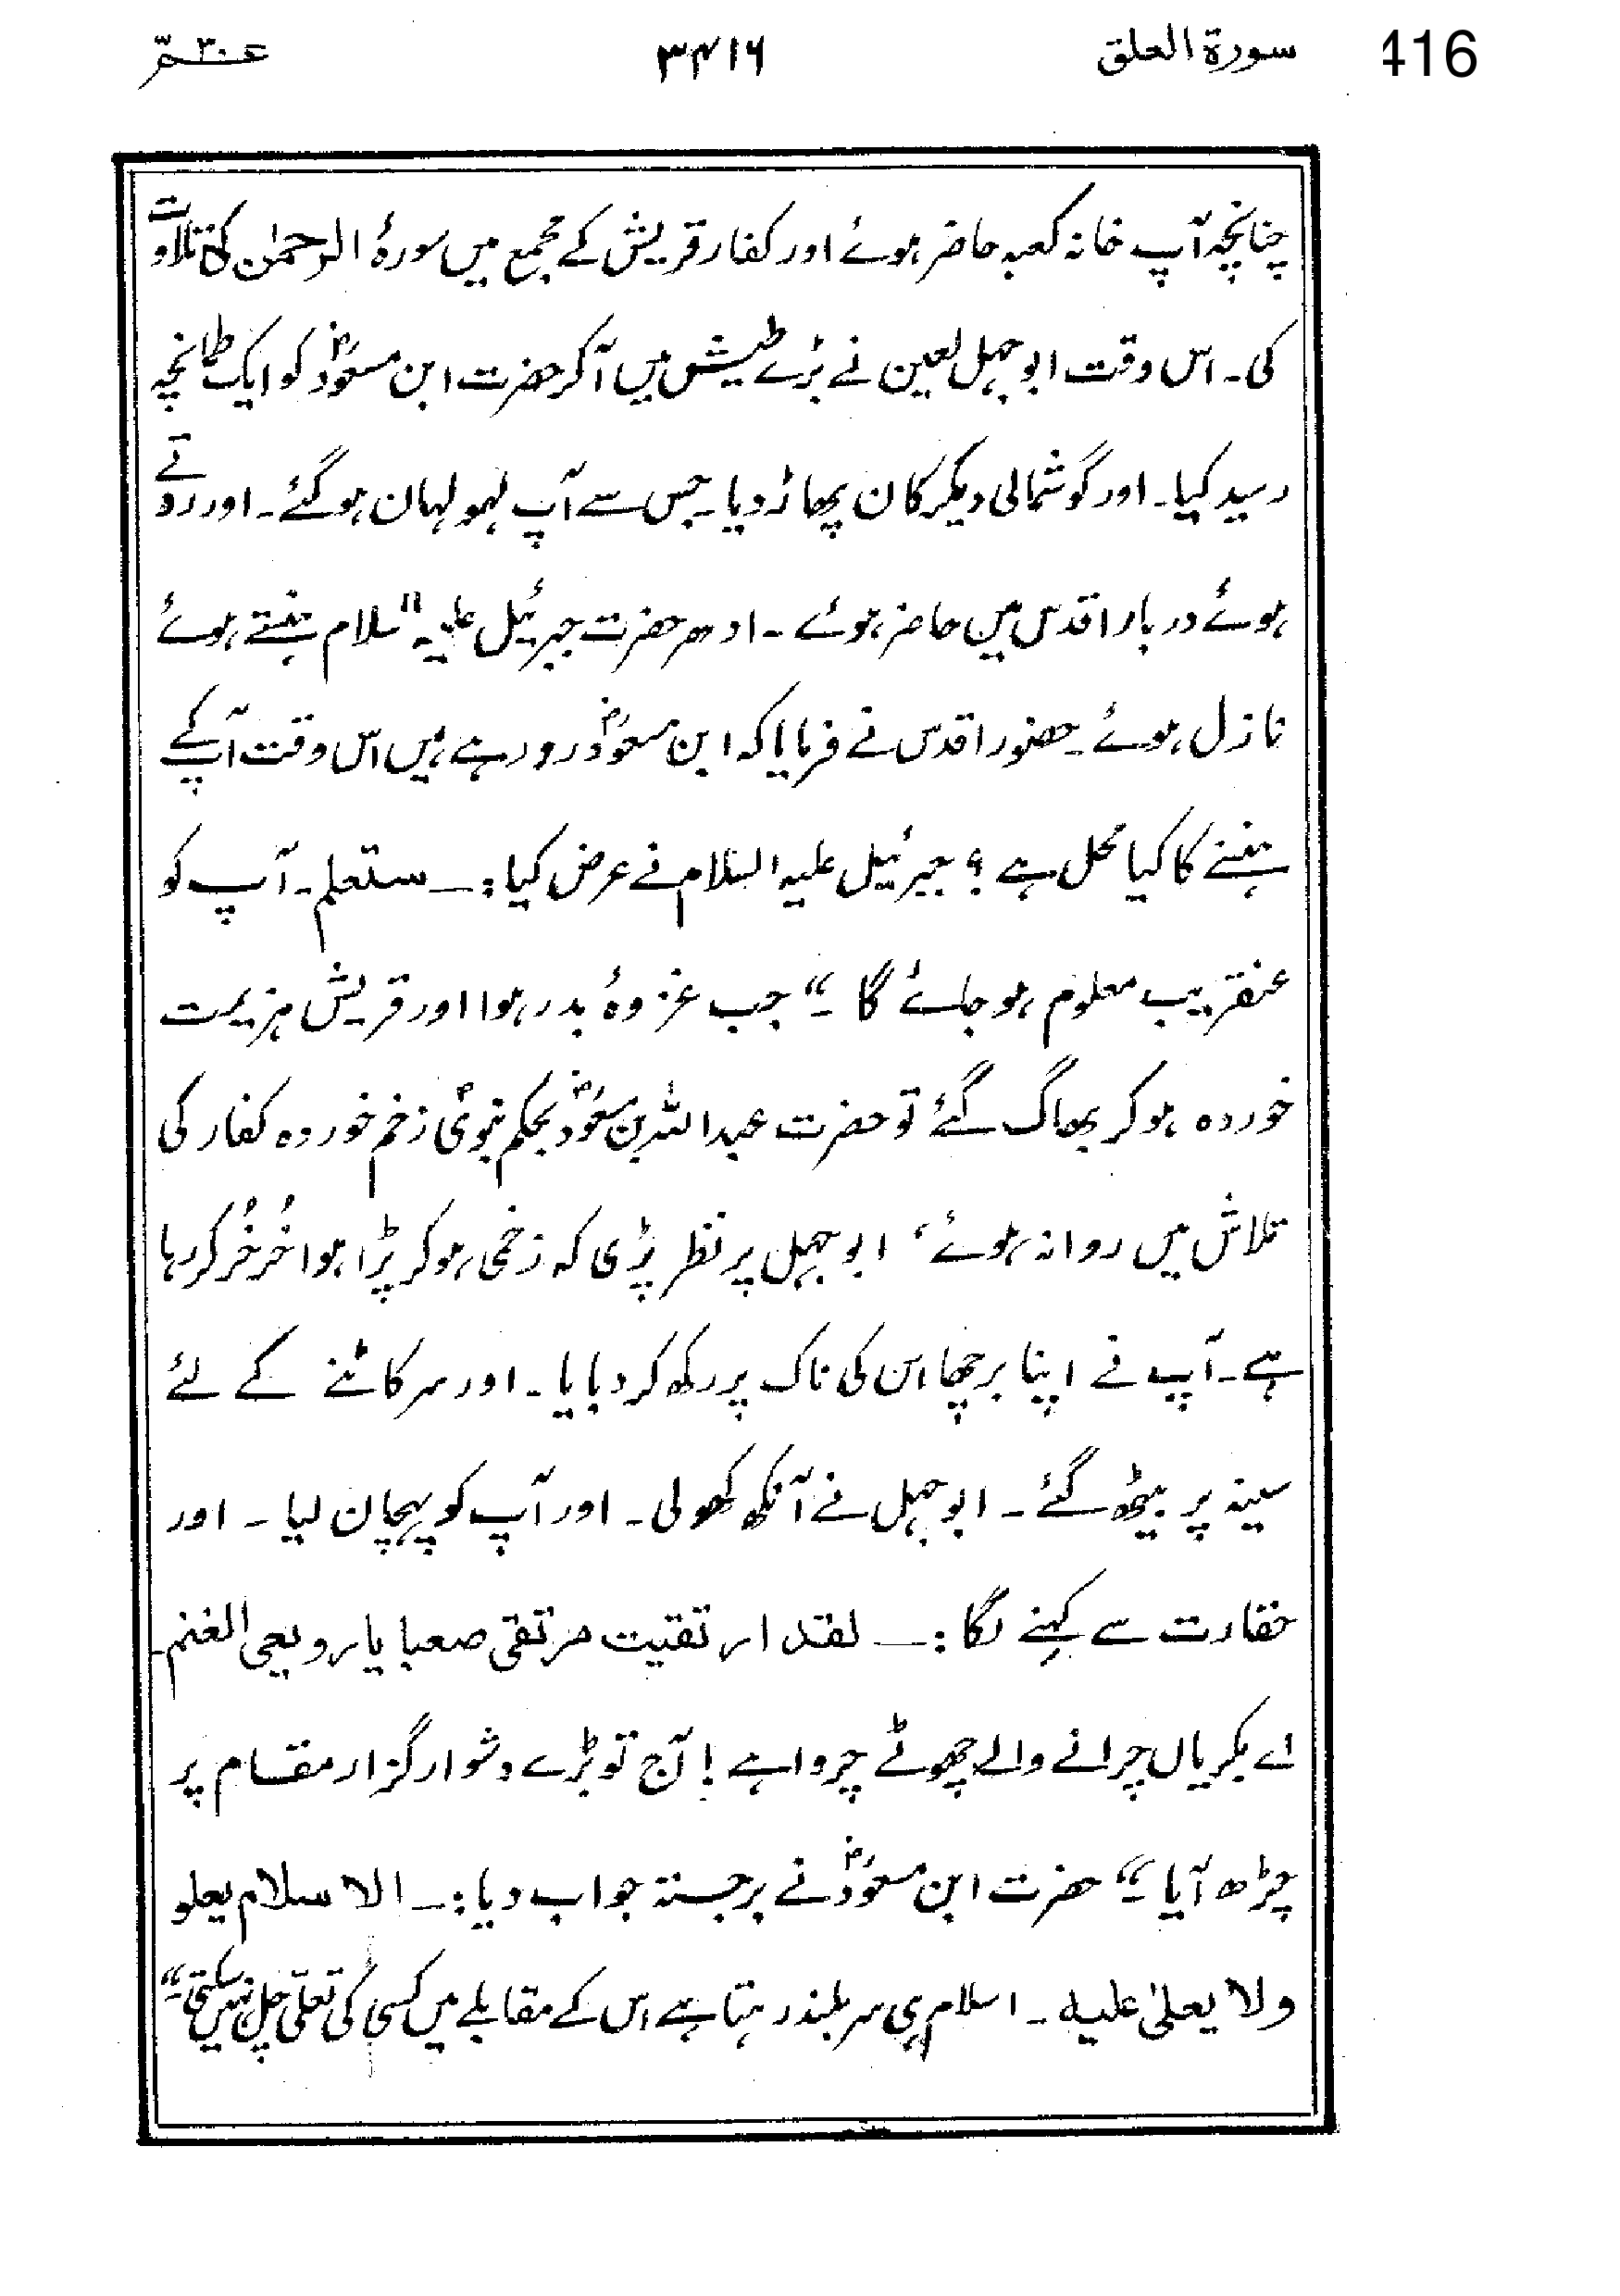 416 سورۃ العلق ۳۴۱۶ عـم ۳۰
چنانچہ آپ خانہ کعبہ حاضر ہوئے اور کفار قریش کے مجمع میں سورۂ الرحمٰن کی تلاوت
کی۔ اس وقت ابو جہل لعین نے بڑے طیش میں آ کر حضرت ابن مسعودؓ کو ایک طمانچہ
رسید کیا۔ اور گوشمالی دیکر کان پھاڑ دیا۔ جس سے آپ لہو لہان ہو گئے۔ اور روتے
ہوئے دربار اقدس میں حاضر ہوئے۔ ادھر حضرت جبرئیل علیہ السلام ہنستے ہوئے
نازل ہوئے۔ حضور اقدس نے فرمایا کہ ابن مسعودؓ رو رہے ہیں اس وقت آپ کے
ہنسنے کا کیا محل ہے ؟ جبرئیل علیہ السلام نے عرض کیا :۔ ستعلم۔ آپ کو
عنقریب معلوم ہو جائے گا ۔“ جب غزوۂ بدر ہوا اور قریش ہزیمت
خوردہ ہو کر بھاگ گئے تو حضرت عبداللہ بن مسعودؓ بحکم نبویؐ زخم خوردہ کفار کی
تلاش میں روانہ ہوئے، ابو جہل پر نظر پڑی کہ زخمی ہو کر پڑا ہوا خُرخُر کر رہا
ہے۔ آپ نے اپنا برچھا اس کی ناک پر رکھ کر دبایا۔ اور سر کاٹنے کے لئے
سینہ پر بیٹھ گئے۔ ابو جہل نے آنکھ کھولی۔ اور آپ کو پہچان لیا۔ اور
حقارت سے کہنے لگا :۔ لقد ارتقیت مرتقی صعبا یا رویعی الغنم۔
اے بکریاں چرانے والے چھوٹے چرواہے! آج تو بڑے دشوار گزار مقام پر
چڑھ آیا ۔“ حضرت ابن مسعودؓ نے برجستہ جواب دیا :۔ الاسلام یعلو
ولا یعلیٰ علیہ ۔ اسلام ہی سر بلند رہتا ہے اس کے مقابلے میں کسی کی تعلّی چل نہیں سکتی۔“